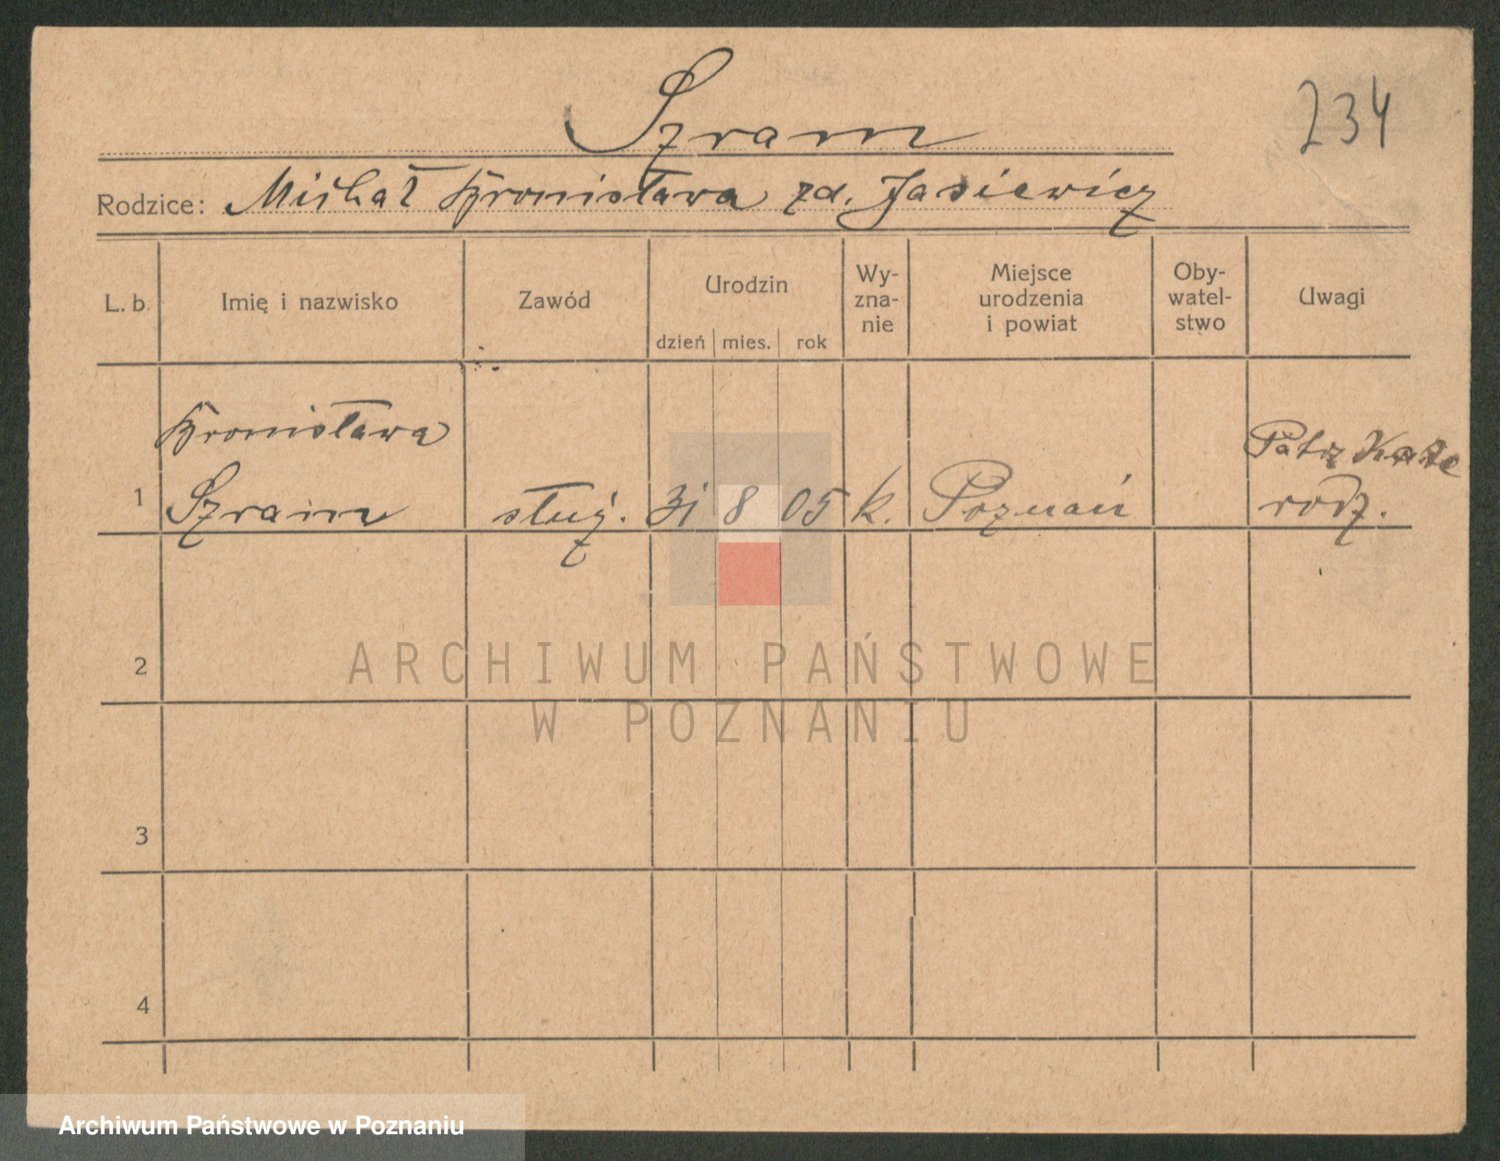 Szram
234
Rodzice: Michał Bronisława zd. Jasiewicz
L. b.
Imię i nazwisko
Zawód
Urodzin
dzień mies. rok
Wy-
zna-
nie
Miejsce
urodzenia
i powiat
Oby-
watel-
stwo
Uwagi
1
Bronisława
Szram
służ.
31 8 05
k.
Poznań
Patrz
rodz.
2
ARCHIWUM PAŃSTWOWE
W POZNANIU
3
4
Archiwum Państwowe w Poznaniu